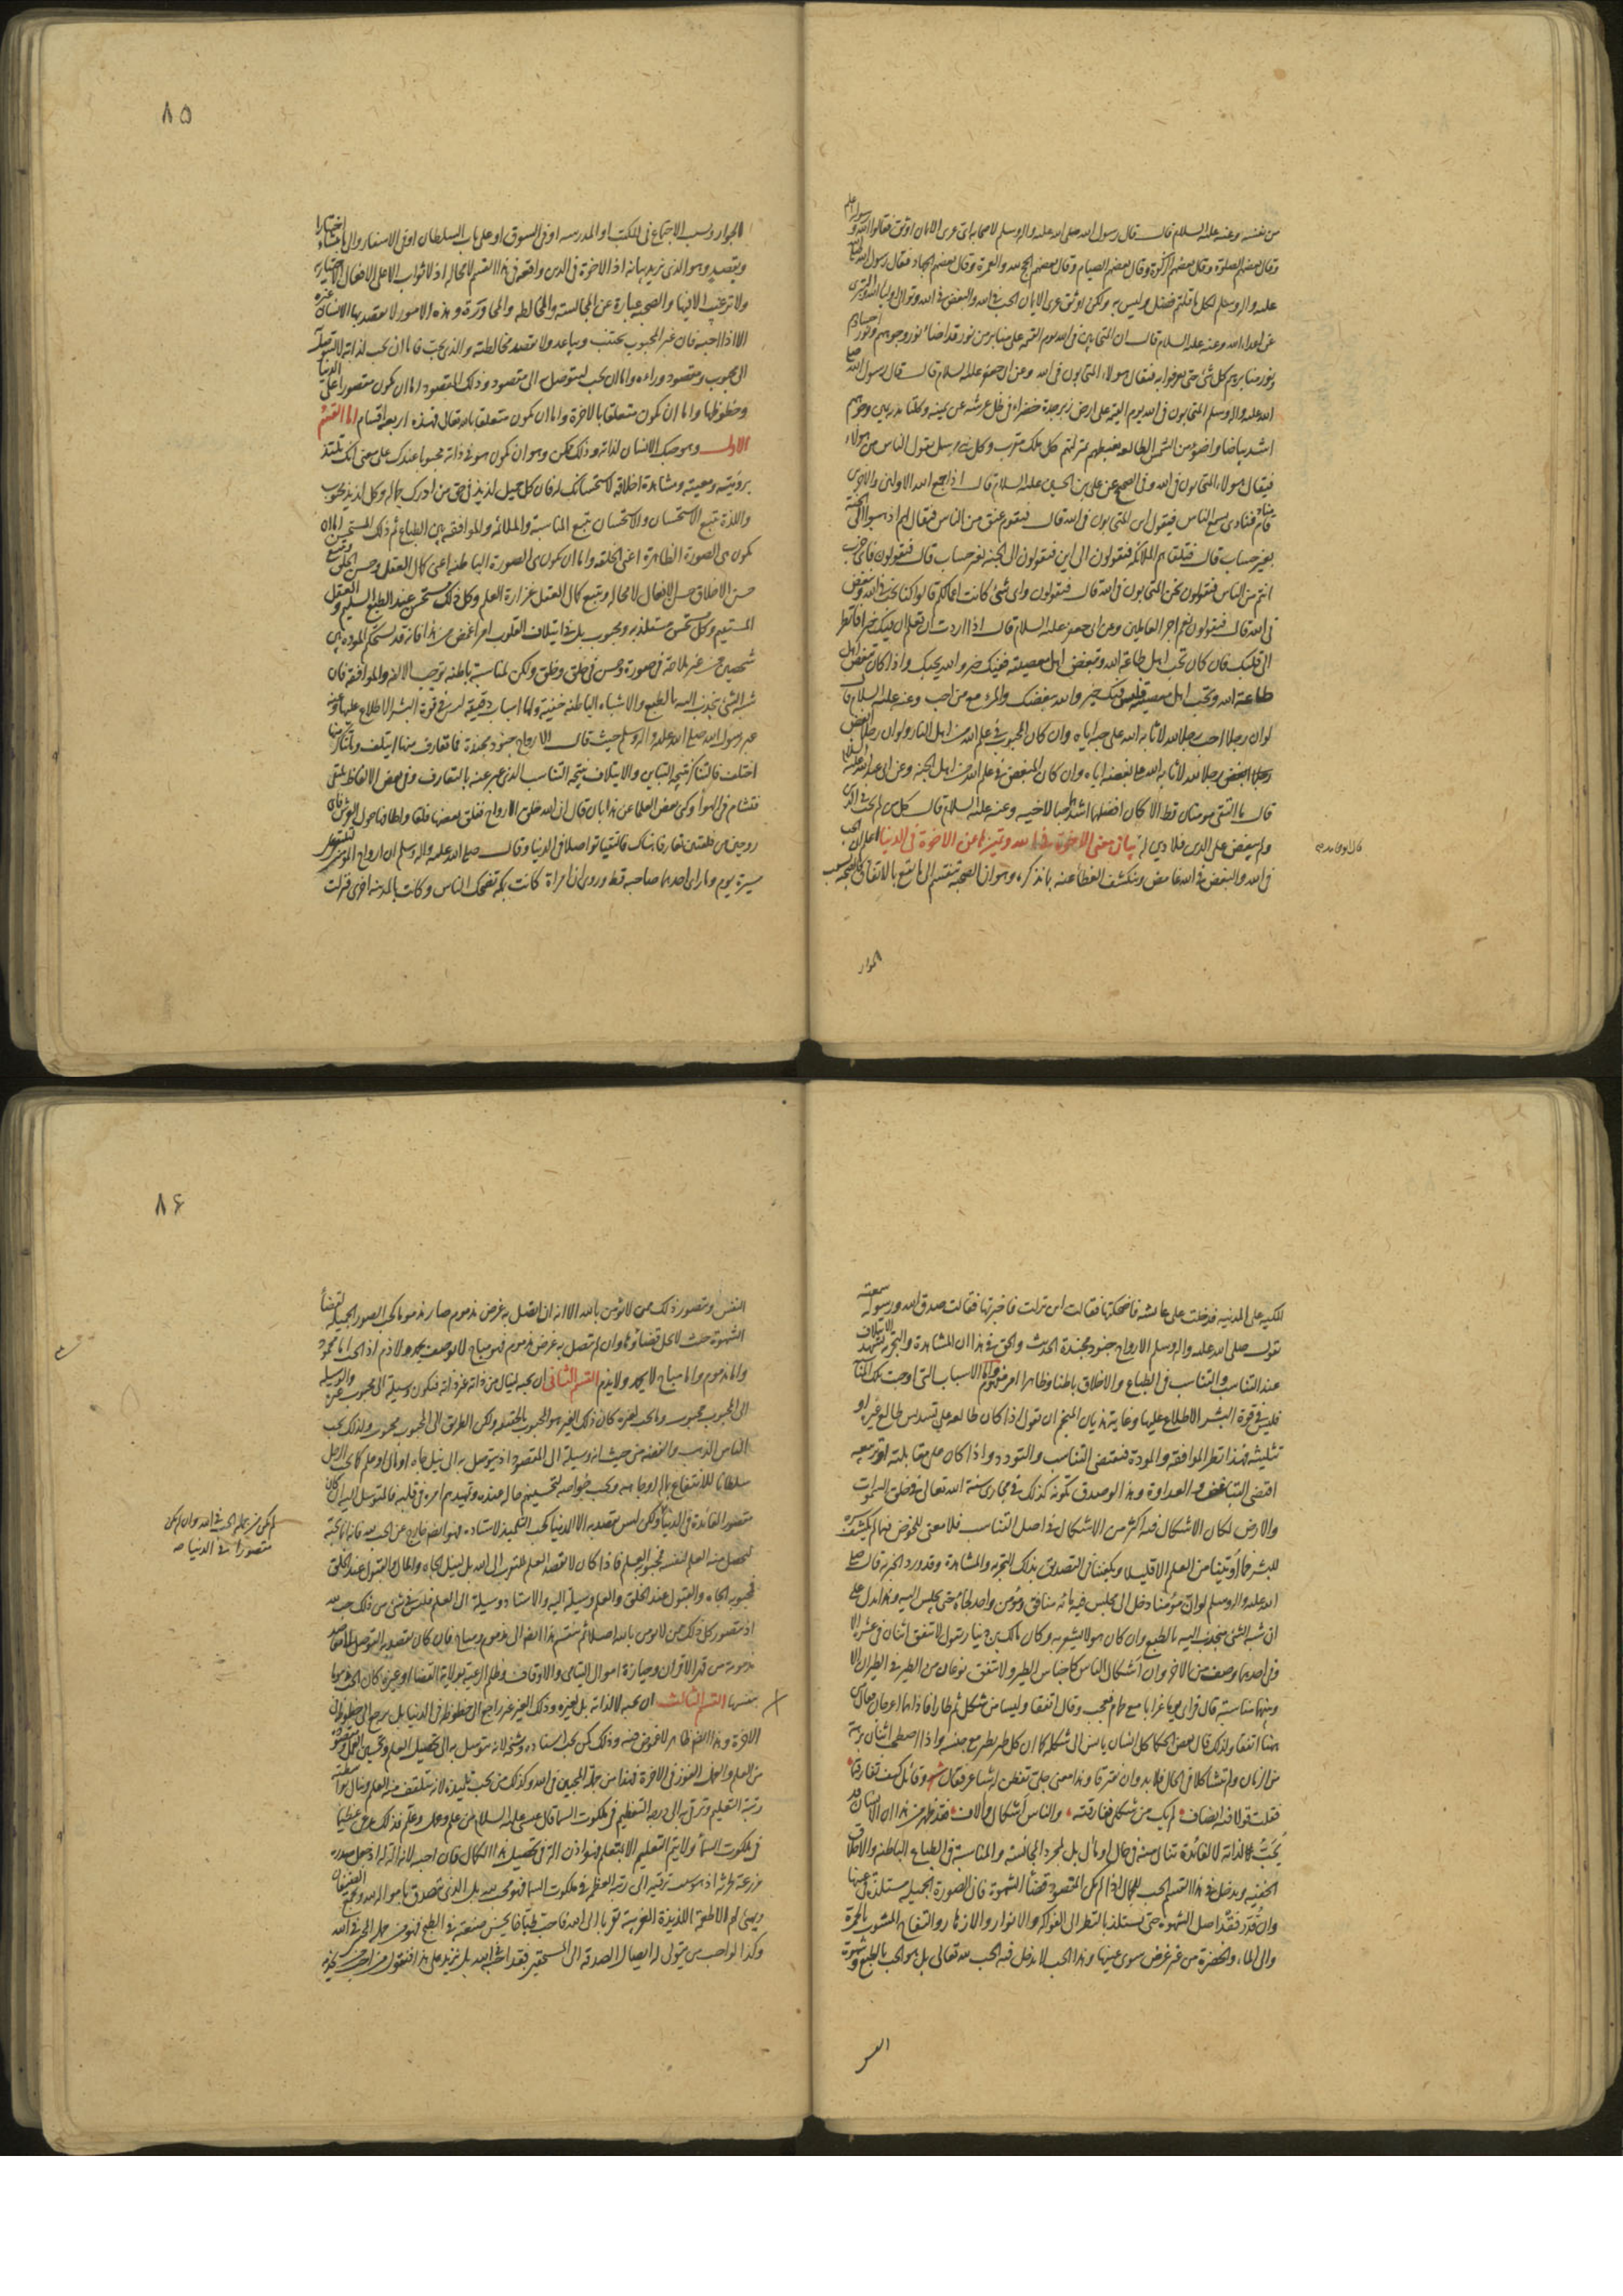 من نفسه وعنه عليه السلام قال قال رسول الله صلى الله عليه واله وسلم لاصحابه اى عرى الايمان اوثق فقالوا الله ورسوله اعلم
وقال بعضهم الصلوة وقال بعضهم الزكوة وقال بعضهم الصيام وقال بعضهم الحج والعمرة وقال بعضهم الجهاد فقال رسول الله صلى الله
عليه واله وسلم لكل ما قلتم فضل وليس به ولكن اوثق عرى الايمان الحب فى الله والبغض فى الله وتوالى اولياء الله والتبرى
من اعداء الله وعنه عليه السلام قال ان المتحابين فى الله يوم القيمة على منابر من نور قد اضاء نور وجوههم ونور اجسادهم
ونور منابرهم كل شئ حتى يعرفوا به فيقال هؤلاء المتحابون فى الله وعن ابى جعفر عليه السلام قال قال رسول الله صلى
الله عليه واله وسلم المتحابون فى الله يوم القيمة على ارض زبرجدة خضراء فى ظل عرشه عن يمينه وكلتا يديه يمين وجوههم
اشد بياضا واضوء من الشمس الطالعة يغبطهم بمنزلتهم كل ملك مقرب وكل نبى مرسل يقول الناس من هؤلاء
فيقال هؤلاء المتحابون فى الله وفى الصحيح عن على بن الحسين عليه السلام قال اذا جمع الله الاولين والاخرين
قام مناد فنادى يسمع الناس فيقول اين المتحابون فى الله قال فيقوم عنق من الناس فيقال لهم اذهبوا الى الجنة
بغير حساب قال فتلقاهم الملائكة فيقولون الى اين فيقولون الى الجنة بغير حساب قال فيقولون فاى ضرب
انتم من الناس فيقولون نحن المتحابون فى الله قال فيقولون واى شئ كانت اعمالكم قالوا كنا نحب فى الله ونبغض
فى الله قال فيقولون نعم اجر العاملين وعن ابى جعفر عليه السلام قال اذا اردت ان تعلم ان فيك خيرا فانظر
الى قلبك فان كان تحب اهل طاعة الله وتبغض اهل معصيته ففيك خير والله يحبك واذا كان تبغض اهل
طاعة الله وتحب اهل معصيته فليس فيك خير والله يبغضك والمرء مع من احب وعنه عليه السلام قال
لو ان رجلا احب رجلا لله لاثابه الله على حبه اياه وان كان المحبوب فى علم الله من اهل النار ولو ان رجلا ابغض
رجلا لله لاثابه الله على بغضه اياه وان كان المبغض فى علم الله من اهل الجنة وعن ابى عبد الله عليه السلام
قال ما التقى مومنان قط الا كان افضلهما اشدهما حبا لاخيه وعنه عليه السلام قال كل من لم يحب على الدين
ولم يبغض على الدين فلا دين له بيان معنى الاخوة فى الله وتميزها من الاخوة فى الدنيا اعلم ان الحب
فى الله والبغض فى الله غامض وينكشف الغطاء عنه بما نذكره وهو ان الصحبة تنقسم الى ما يقع بالاتفاق كالصحبة بسبب
قال ابو حامد
الجوار
٨٥
الجوار وبسبب الاجتماع فى المكتب او المدرسه او فى السوق او على باب السلطان او فى الاسفار والى ما ينشاء اختيارا
ويقصد وهو الذى نريد بيانه اذ الاخوة فى الدين واقعة فى هذا القسم لا محالة اذ لا ثواب الا على الافعال الاختيارية
ولا ترغيب الا فيها والصحبة عبارة عن المجالسة والمخالطة والمجاورة وهذه الامور لا يقصد بها الانسان غيره
الا اذا احبه فان غير المحبوب يجتنب ويباعد ولا يقصد مخالطته والذى يحب فاما ان يحب لذاته لا ليتوصل به
الى محبوب ومقصود وراءه واما ان يحب ليتوصل به الى مقصود وذلك المقصود اما ان يكون مقصورا على الدنيا
وحظوظها واما ان يكون متعلقا بالاخرة واما ان يكون متعلقا بالله تعالى فهذه اربعة اقسام اما القسم
الاول وهو حبك الانسان لذاته وذلك ممكن وهو ان يكون هو فى ذاته محبوبا عندك على معنى انك تلتذ
برؤيته ومعيته ومشاهدة اخلاقه لاستحسانك له فان كل جميل لذيذ فى حق من ادرك جماله وكل لذيذ محبوب
واللذة تتبع الاستحسان والاستحسان يتبع المناسبة والملائمة والموافقة بين الطباع ثم ذلك المستحسن اما ان
يكون هى الصورة الظاهرة اعنى الخلقة واما ان يكون هى الصورة الباطنة اعنى كمال العقل وحسن الخلق ويتبع
حسن الاخلاق حسن الافعال لا محالة ويتبع كمال العقل غزارة العلم وكل ذلك مستحسن عند الطبع السليم والعقل
المستقيم وكل مستحسن مستلذ به ومحبوب بل فى ايتلاف القلوب امر اغمض من هذا فانه قد تستحكم المودة بين
شخصين من غير ملاحة فى صورة وحسن فى خلق وخلق ولكن لمناسبة باطنة توجب الالفة والموافقة فان
شبه الشئ ينجذب اليه بالطبع والاشباه الباطنة خفية ولها اسباب دقيقة ليس فى قوة البشر الاطلاع عليها وعنه
عبر رسول الله صلى الله عليه واله وسلم حيث قال الارواح جنود مجندة فما تعارف منها ايتلف وما تناكر منها
اختلف فالتناكر نتيجة التباين والايتلاف نتيجة التناسب الذى عبر عنه بالتعارف وفى بعض الالفاظ تلتقى
فتشام فى الهواء وكنى بعض العلما عن هذا بان قال ان الله خلق الارواح ففلق بعضها فلقا واطافها حول العرش فاى
روحين من فلقتين تعارفا هناك فالتقيا تواصلا فى الدنيا وقال صلى الله عليه واله وسلم ان ارواح المومنين لتلتقى على
مسيرة يوم وما راى احدهما صاحبه قط وروى ان امراة كانت بمكة تضحك الناس وكانت بالمدينة اخرى فنزلت
المكية على المدنية فدخلت على عائشة فاضحكتها فقالت اين نزلت فاخبرتها فقالت صدق الله ورسوله سمعته
يقول صلى الله عليه واله وسلم الارواح جنود مجندة الحديث والحق فى هذا ان المشاهدة والتجربة تشهد للايتلاف
عند التناسب والتناسب فى الطباع والاخلاق باطنا وظاهرا امر مفهوم واما الاسباب التى اوجبت تلك المناسبة
فليس فى قوة البشر الاطلاع عليها وغاية هذيان المنجم ان يقول اذا كان طالعه على تسديس طالع غيره او
تثليثه فهذا نظر الموافقة والمودة فيقتضى التناسب والتودد واذا كان على مقابلته او تربيعه
اقتضى التباغض والعداوة وهذا لو صدق بكونه كذلك فى مجارى سنة الله تعالى فى خلق السموات
والارض لكان الاشكال فيه اكثر من الاشكال فى اصل التناسب فلا معنى للخوض فيما لم ينكشف سره
للبشر فما أوتينا من العلم الا قليلا ويكفينا فى التصديق بذلك التجربة والمشاهدة وقد ورد الخبر به قال صلى
الله عليه واله وسلم لو انّ مؤمنا دخل الى مجلس فيه مائة منافق ومؤمن واحد لجاء حتى يجلس اليه وهذا يدل على
ان شبه الشئ منجذب اليه بالطبع وان كان هو لا يشعر به وكان مالك بن دينار يقول لا يتفق اثنان فى عشرة الا
وفى احدهما وصف من الاخر وان أشكال الناس كاجناس الطير ولا يتفق نوعان من الطير فى الطيران الا
وبينهما مناسبة قال فراى يوما غرابا مع حمامة فعجب وقال اتفقا وليسا من شكل ثم طارا فاذا هما اعرجان فقال من
هنا اتفقا ولذلك قال بعض الحكماء كل انسان يانس الى شكله كما ان كل طير يطير مع جنسه واذا اصطحب اثنان برهة
من الزمان ولم يتشاكلا فى الحال فلا بد وان يفترقا وهذا معنى جلى تفطن له الشعراء فقال شعر وقائل كيف تفارقتما
فقلت قولا فيه انصاف لم يك من شكلى ففارقته والناس أشكال وألاف فقد ظهر من هذا ان الانسان قد
يُحَبّ لذاته لا لفائدة تنال منه فى حال او مال بل لمجرد المجانسة والمناسبة فى الطباع الباطنة والاخلاق
الخفية ويدخل فى هذا القسم الحب للجمال اذا لم يكن المقصود قضاء الشهوة فان الصورة الجميلة مستلذة فى عينها
وان قُدّر فقد اصل الشهوة حتى يستلذ بالنظر الى الفواكه والانوار والازهار والتفاح المشوب بالحمرة
والى الماء والخضرة من غير غرض سوى عينها وهذا الحب لا يدخل فيه الحب لله تعالى بل هو الحب بالطبع وشهوة
النفس
٨۶
النفس ويتصور ذلك ممن لا يؤمن بالله الا انه ان اتصل به غرض مذموم صار مذموما كحب الصور الجميلة لقضاء
الشهوة حيث لا يحل قضاؤها وان لم يتصل به غرض مذموم فهو مباح لا يوصف بحمد ولا ذم اذ الحب اما محمود
واما مذموم واما مباح لا يحمد ولا يذم القسم الثانى ان يحبه لينال من ذاته غير ذاته فيكون وسيلة الى محبوب غيره والوسيلة
الى المحبوب محبوب وما يحب لغيره كان ذلك الغير هو المحبوب بالحقيقة ولكن الطريق الى المحبوب محبوب ولذلك يحب
الناس الذهب والفضة من حيث انه وسيلة الى المقصود اذ يتوصل به الى نيل جاه او مال او علم كما يحب الرجل
سلطانا للانتفاع بماله او جاهه ويحب خواصه لتحسينهم حاله عنده وتمهيدهم امره فى قلبه فالمتوسل اليه ان كان
مقصور الفائدة فى الدنيا ولكن ليس يقصد به الا الدنيا كحب التلميذ لاستاده فهو ايضا خارج عن الحب لله فانه انما يحبه
ليحصل منه العلم لنفسه فمحبوبه العلم فاذا كان لا يقصد العلم للتقرب الى الله بل لينال به الجاه والمال والقبول عند الخلق
فمحبوبه الجاه والقبول عند الخلق والعلم وسيلة اليه والاستاد وسيلة الى العلم فليس فى شئ من ذلك حب لله
اذ يتصور كل ذلك ممن لا يومن بالله اصلا ثم ينقسم هذا ايضا الى مذموم ومباح فان كان يقصد به التوصل الى مقاصد
مذمومة من قهر الاقران وحيازة اموال اليتامى والاوقاف وظلم الرعية بولاية القضاء او غيره كان الحب مذموما
بنفسها القسم الثالث ان يحبه لا لذاته بل لغيره وذلك الغير غير راجع الى حظوظه فى الدنيا بل يرجع الى حظوظه فى
الاخرة وهذا ايضا ظاهر لا غموض فيه وذلك كمن يحب استاده وشيخه لانه يتوسل به الى تحصيل العلم وتحسين العمل ومقصوده
من العلم والعمل الفوز فى الاخرة فهذا من جملة المحبين فى الله وكذلك من يحب تلميذه لانه يتلقف منه العلم وينال بواسطته
رتبة التعليم وترقى به الى درجة التعظيم فى ملكوت السما قال عيسى عليه السلام من علم وعمل وعلّم فذلك يدعى عظيما
فى ملكوت السماء ولا يتم التعليم الا بمتعلم فهو اذن الة فى تحصيل هذا الكمال فان احبه لانه الة له اذ جعل صدره
مزرعة لحرثه اذ هو سبب ترقيه الى رتبة العظمة فى ملكوت السما فهو محب لله بل الذى يتصدق باموال لله ويجمع الضيفان
ويهيئ لهم الاطعمة اللذيذة الغريبة تقربا الى الله فاحب طباخا يحسن صنعته فى الطبخ فهو من جملة المحبين فى الله
وكذا لو احب من يتولى له ايصال الصدقة الى المستحقين فقد احبه فى الله بل نزيد على هذا فنقول من احب من يخدمه
لم يكن من جملة الحب فى الله وان لم يكن
مقصورا فى الدنيا صه